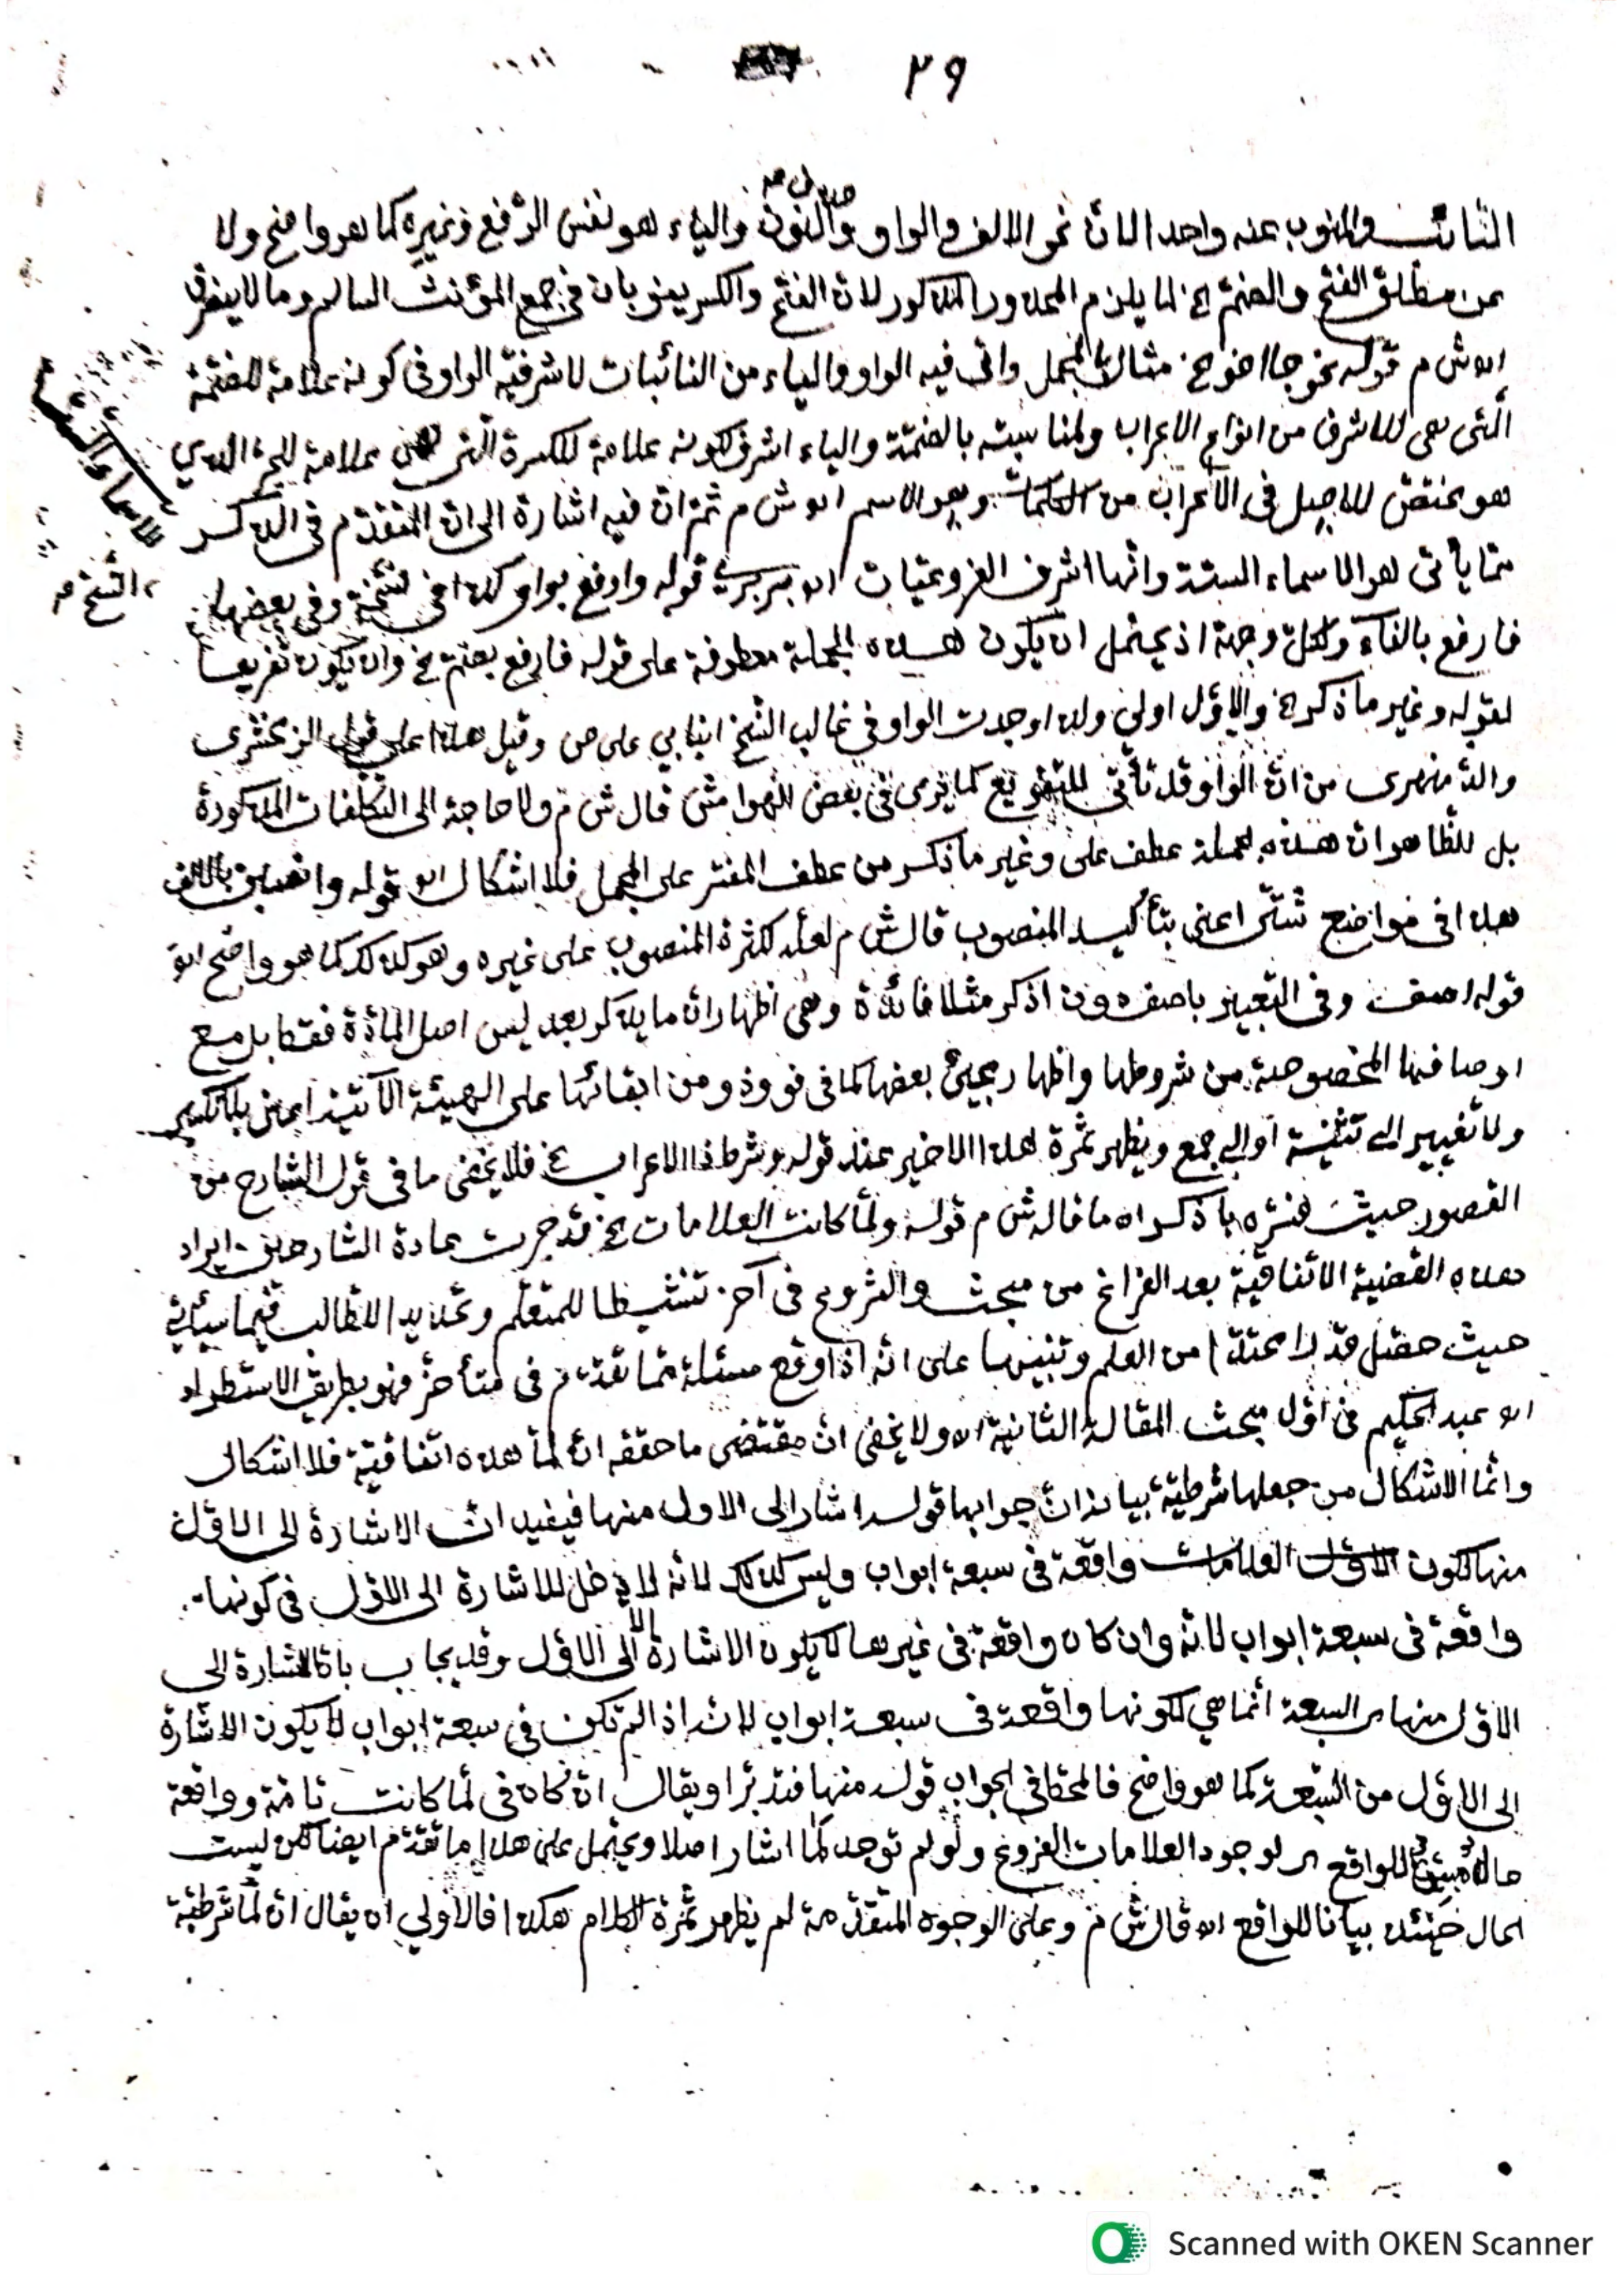 ٢٩
النائب والمنوب عنه واحد الا ان نحو الالف والواو والنون والياء هو نفس الرفع وغيره كما هو واضح ولا
من مطلق الفتح والضم الخ لما يلزم المحذور المذكور لان الفتح والكسر ينوبان في جمع المؤنث السالم وما لا ينصرف
اه ش م قوله نحو جا اخو الخ مثال المجمل واتى فيه الواو والياء من النائبات لاشرفية الواو في كونه علامة للضمة
التى هى للاشرف من انواع الاعراب ولمناسبته بالضمة والياء اشرف لكونه علامة للكسرة التى هى علامة للجر الذي
هو مختص للاصيل في الاعراب من الكلمات وهو الاسم اه ش م ثم ان فيه اشارة الى ان المتقدم في الذكر
مما يأتى هو الاسماء الستة وانها اشرف الفروعيات اه قوله وارفع بواو كذا فى نسخة وفى بعضها
للاسماء الستة
النسخ
فارفع بالفاء ولكل وجهة اذ يحتمل ان يكون هذه الجملة معطوفة على قوله فارفع بضم الخ وان يكون تفريعا
لقوله وغير ما ذكر الخ والاول اولى ولذا وجدت الواو فى غالب النسخ على ص وقيل هذا على قول الزمخشرى
من ان الواو قد تأتى للتفريع كما يرى فى بعض الهوامش قال ش م ولا حاجة الى التكلفات المذكورة
بل الظاهر ان هذه الجملة عطف على وغير ما ذكر من عطف المفسر على المجمل فلا اشكال اه قوله وانصبن بالالف
هذا فى مواضع شتى اعنى بتأكيد المنصوب قال ش م لعله لكثرة المنصوب على غيره وهو كذلك كما هو واضح اه
قوله اصف وفى التعبير باصف دون اذكر مثلا فائدة وهى اظهار ان ما يذكر بعد ليس اصل المادة فقط بل مع
اوصافها المخصوصة من شروطها واظهار مجيئ بعضها كما فى فو وذو ومن ابقائها على الهيئة الآتية اعنى بلا تكسير
ولا تغيير الى تثنية او الى جمع ويظهر ثمرة هذا الاخير عند قوله وشرط ذا الاعراب الخ فلا يخفى ما فى قول الشارح من
القصور حيث فسره باذكر اه ما قاله ش م قوله ولما كانت العلامات الخ قد جرت عادة الشارحين بايراد
هذه القضية الاتفاقية بعد الفراغ من مبحث والشروع فى آخر تنشيطا للمتعلم وتحديدا للطالب فيما سيأتي
حيث حصل قدرا معتدا من العلم وتنبيها على انه اذا وقع مسئلة مما تقدم فى متأخر فهو بطريق الاستطراد
اه عبد الحكيم فى اول مبحث المقالة الثانية اه ولا يخفى ان مقتضى ما حققه ان لما هذه اتفاقية فلا اشكال
وانما الاشكال من جعلها شرطية بيانه ان جوابها قوله اشار الى الاول منها فيفيد ان الاشارة الى الاول
منها لكون العلامات واقعة فى سبعة ابواب وليس كذلك لانه لا دخل للاشارة الى الاول فى كونها
واقعة فى سبعة ابواب لانه وان كان واقعة فى غيرها لا يكون الاشارة الا الى الاول وقد يجاب بان الاشارة الى
الاول منها من السبعة انما هي لكونها واقعة فى سبعة ابواب لانه اذا لم تكن فى سبعة ابواب لا يكون الاشارة
الى الاول من السبعة كما هو واضح فالمحط فى الجواب قوله منها فتدبر او يقال ان كان فى لما كانت تامة وواقعة
حال مبين للواقع اى لوجود العلامات الفروع ولو لم توجد لما اشار اصلا ويحتمل على هذا ما تقدم ايضا لكن ليست
الحال حينئذ بيانا للواقع اه قال ش م وعلى الوجوه المتقدمة لم يظهر ثمرة الكلام هكذا فالاولى ان يقال ان لما شرطية
Scanned with OKEN Scanner